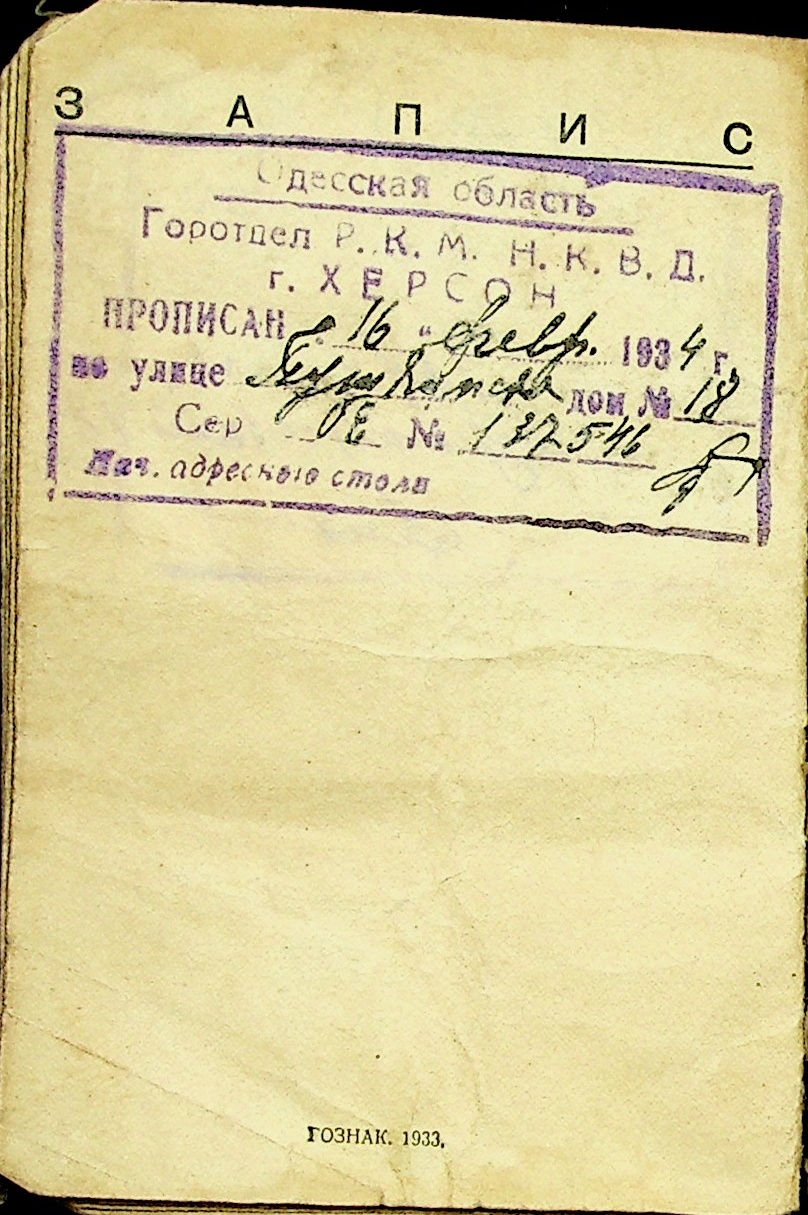 З А П И С
Одесская область
Горотдел Р. К. М. Н. К. В. Д.
г. ХЕРСОН
ПРОПИСАН „ 16 " февр. 1934 г.
по улице Пушкинска дом № 18
Сер ОЕ № 137546
Нач. адресного стола
ГОЗНАК. 1933.